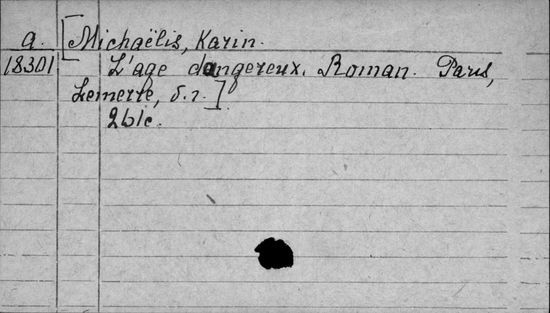 a. [Michaëlis, Karin.
18301 L'age dangereux. Roman. Paris,
Lemerre, s.r.]
2b/c.